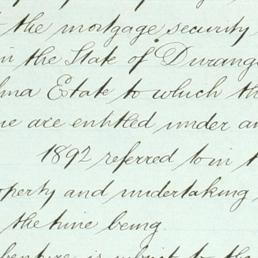 the mortgage security
in the State of Durang
lma Estate to which th
ne are entitled under a
1892 referred to in t
operty and undertaking
the time being.
benture is subject to the